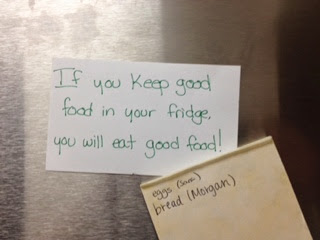 If you Keep good
food in your fridge,
you will eat good food!
eggs (Sam)
bread (Morgan)